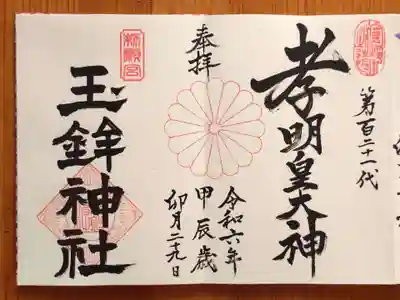 孝明皇大神
第百二十一代
奉拝
令和六年
甲辰歳
卯月二十九日
玉鉾神社